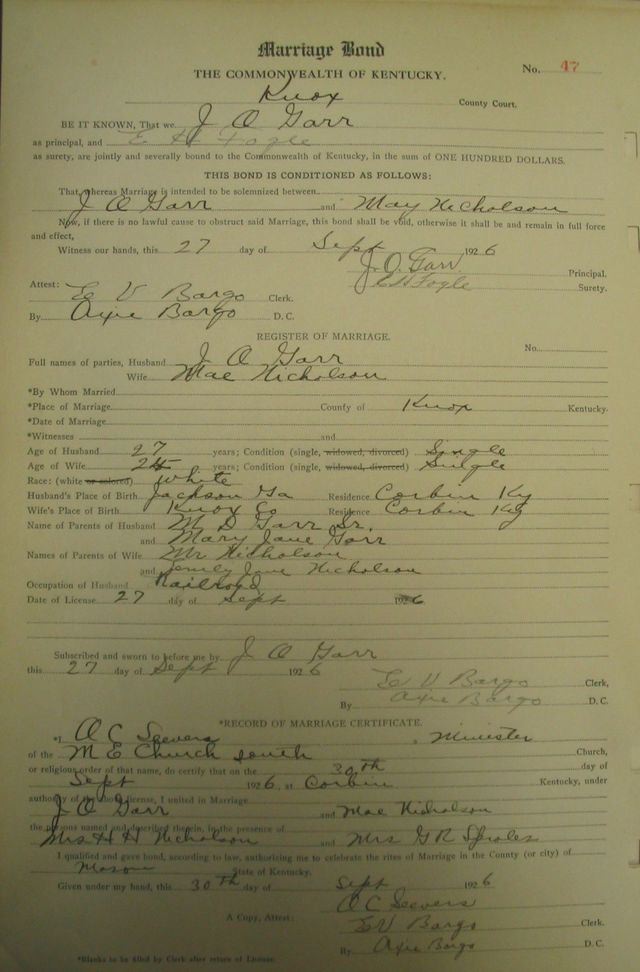 Marriage Bond
THE COMMONWEALTH OF KENTUCKY. No. 47
Knox County Court.
BE IT KNOWN, That we J O Garr
as principal, and E H Fogle
as surety, are jointly and severally bound to the Commonwealth of Kentucky, in the sum of ONE HUNDRED DOLLARS.
THIS BOND IS CONDITIONED AS FOLLOWS:
That whereas Marriage is intended to be solemnized between
J O Garr and May Nicholson
Now, if there is no lawful cause to obstruct said Marriage, this bond shall be void, otherwise it shall be and remain in full force
and effect,
Witness our hands, this 27 day of Sept 1926
J. O. Garr Principal.
E H Fogle Surety.
Attest: E V Bargo Clerk.
By Axie Bargo D. C.
REGISTER OF MARRIAGE.
No.
Full names of parties, Husband J O Garr
Wife Mae Nicholson
*By Whom Married
*Place of Marriage County of Knox Kentucky.
*Date of Marriage
*Witnesses and
Age of Husband 27 years; Condition (single, widowed, divorced) Single
Age of Wife years; Condition (single, widowed, divorced) Single
Race: (white or colored) White
Husband's Place of Birth Jackson Ga Residence Corbin Ky
Wife's Place of Birth Knox Co Residence Corbin Ky
Name of Parents of Husband M D Garr Sr.
and Mary Jane Garr
Names of Parents of Wife Mr Nicholson
and Jane Nicholson
Occupation of Husband Railroad
Date of License 27 day of Sept 1926
Subscribed and sworn to before me by J O Garr
this 27 day of Sept 1926
E V Bargo Clerk,
By Axie Bargo D. C.
*RECORD OF MARRIAGE CERTIFICATE.
*I O C Seevers Minister
of the M E Church South Church,
or religious order of that name, do certify that on the 30th day of
Sept 1926, at Corbin Kentucky, under
authority of the above license, I united in Marriage
J O Garr and Mae Nicholson
the persons named and described therein, in the presence of
Mrs H H Nicholson and Mrs G R Sproles
I qualified and gave bond, according to law, authorizing me to celebrate the rites of Marriage in the County (or city) of
Mason State of Kentucky.
Given under my hand, this 30th day of Sept 1926
O C Seevers
A Copy, Attest: E V Bargo Clerk.
By Axie Bargo D. C.
*Blanks to be filled by Clerk after return of License.